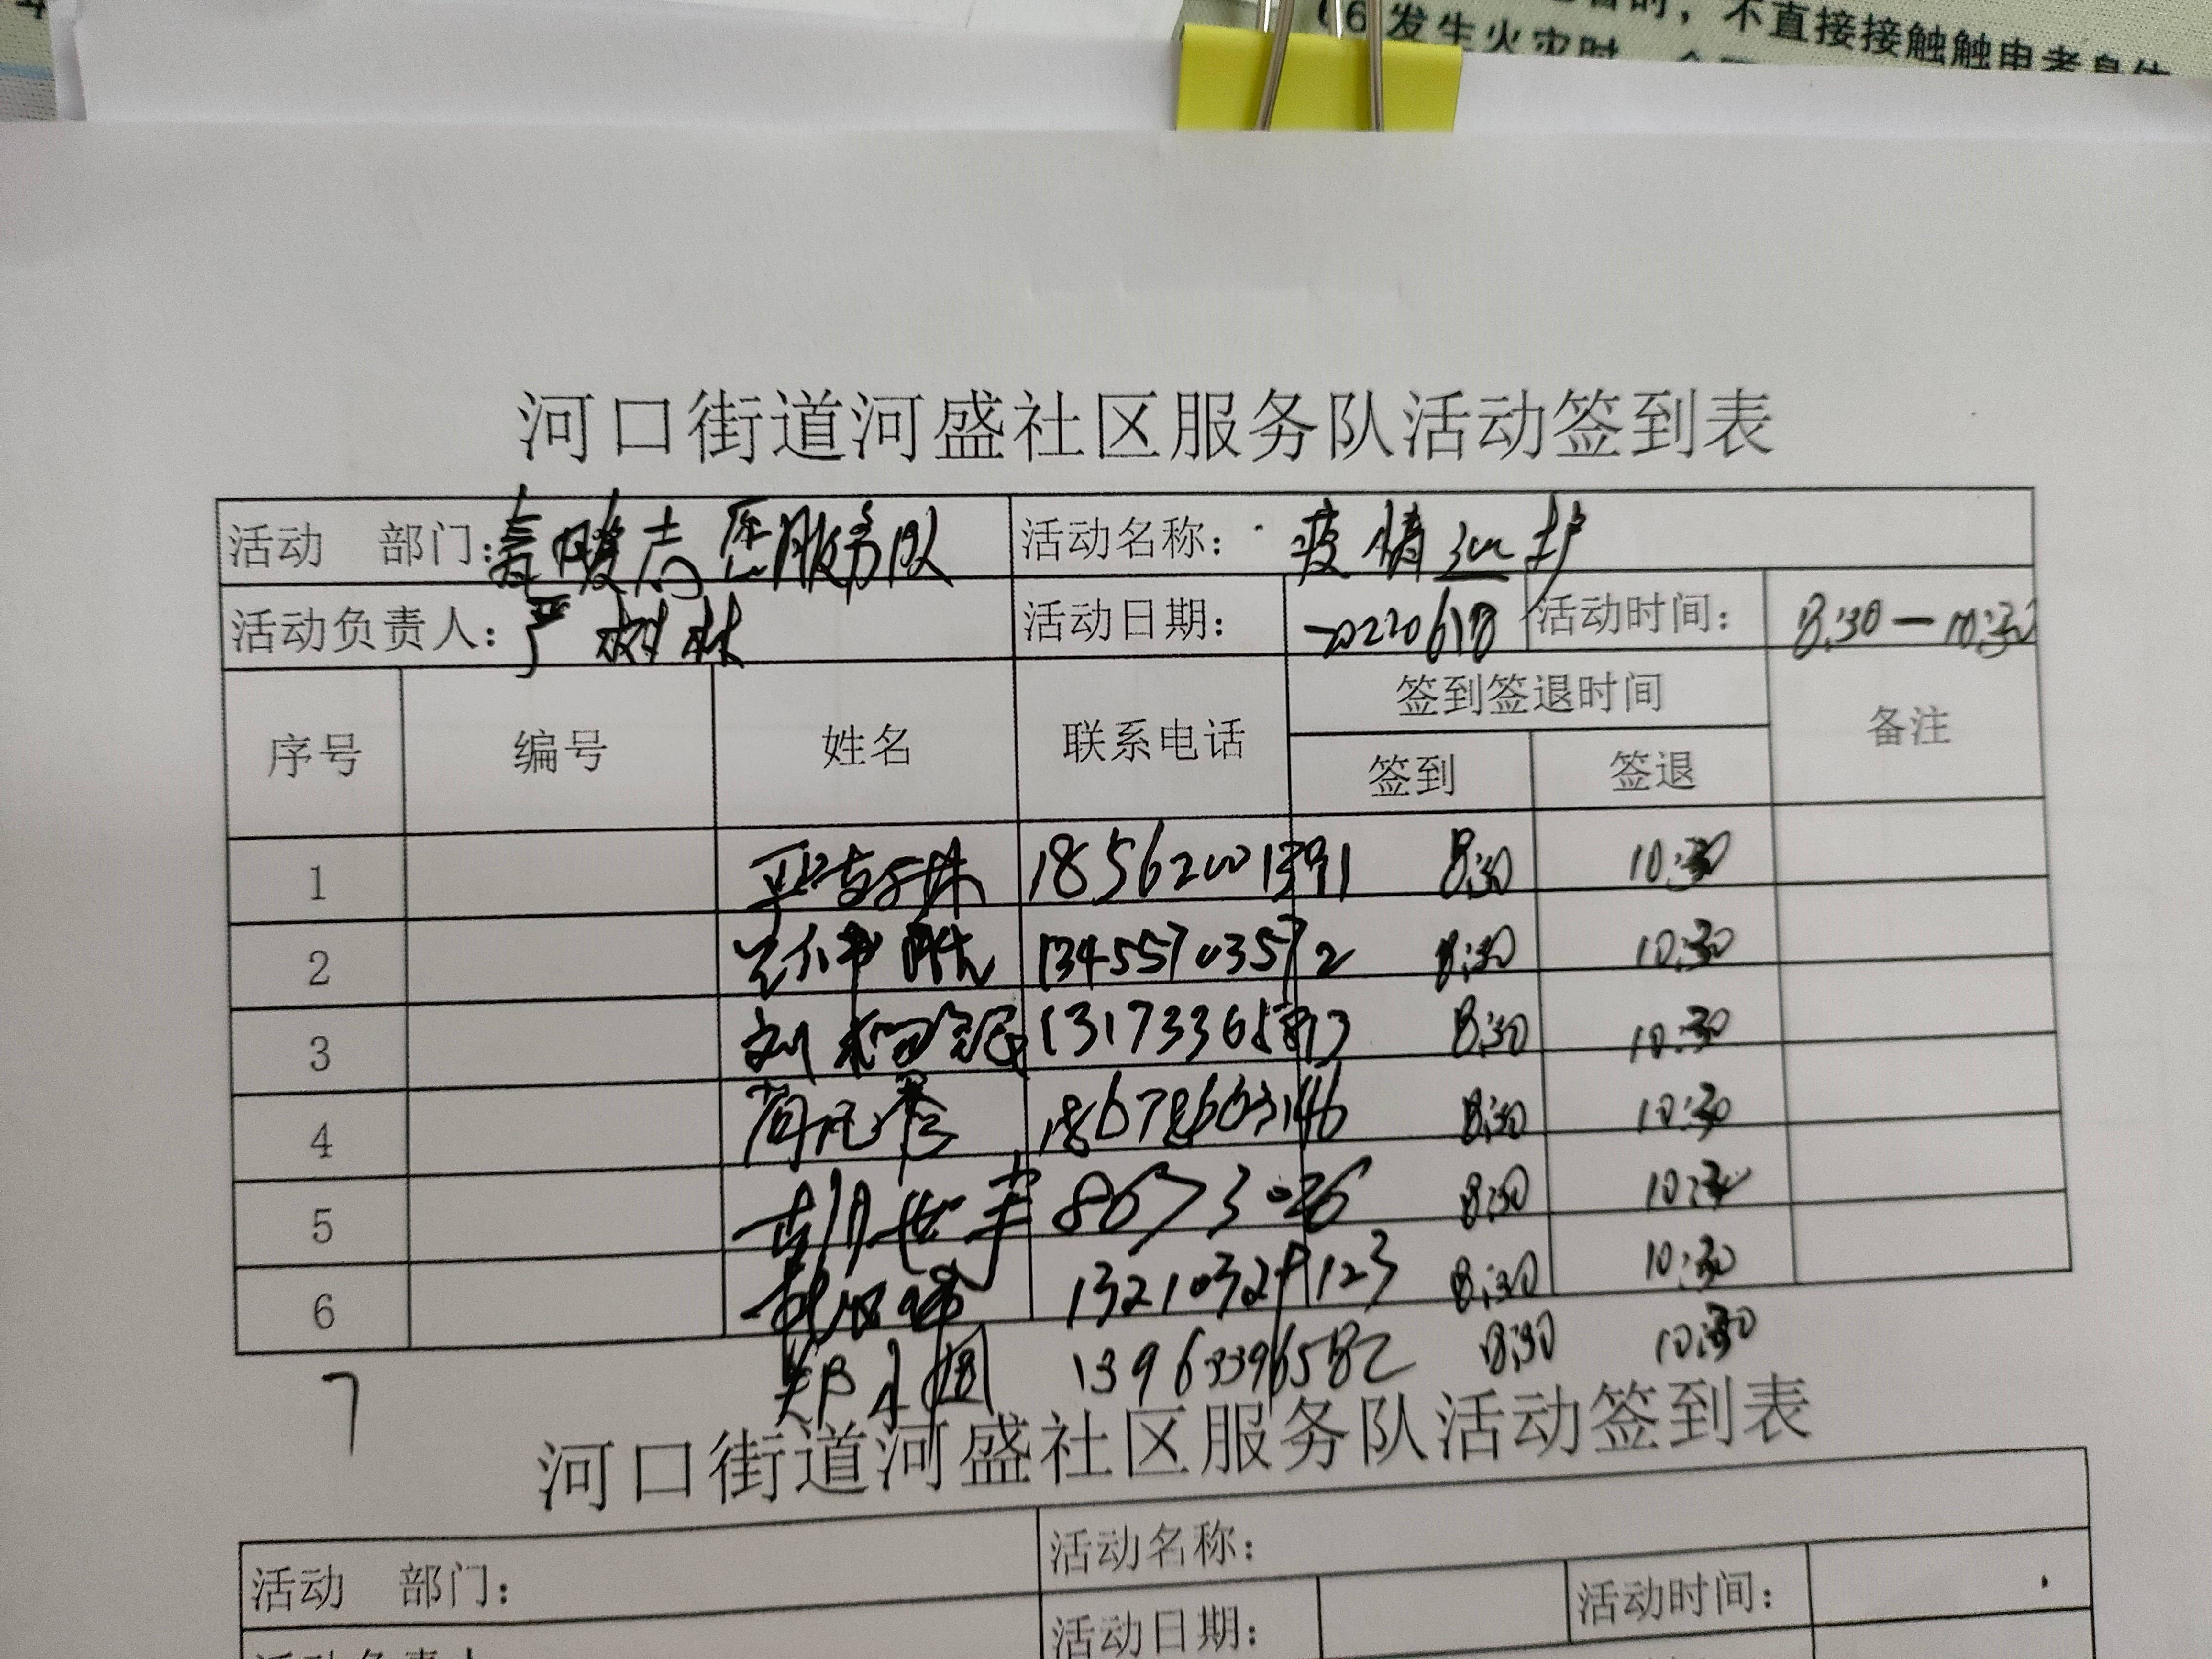 不直接接触触电者身体
(6发生火灾时
河口街道河盛社区服务队活动签到表
活动 部门:春暖志愿服务队 活动名称: 疫情巡护
活动负责人:严树林 活动日期: 20220618 活动时间: 8:30—10:30
序号 编号 姓名 联系电话 签到签退时间 备注
签到 签退
1 18562001391 8:30 10:30
2 13455703572 8:30 10:30
3 刘 8:30 10:30
4 18678603146 8:30 10:30
5 胡世 8673026 8:30 10:30
6 8:30 10:30
7 郑 13963396582 8:30 10:30
河口街道河盛社区服务队活动签到表
活动 部门: 活动名称:
活动日期: 活动时间: